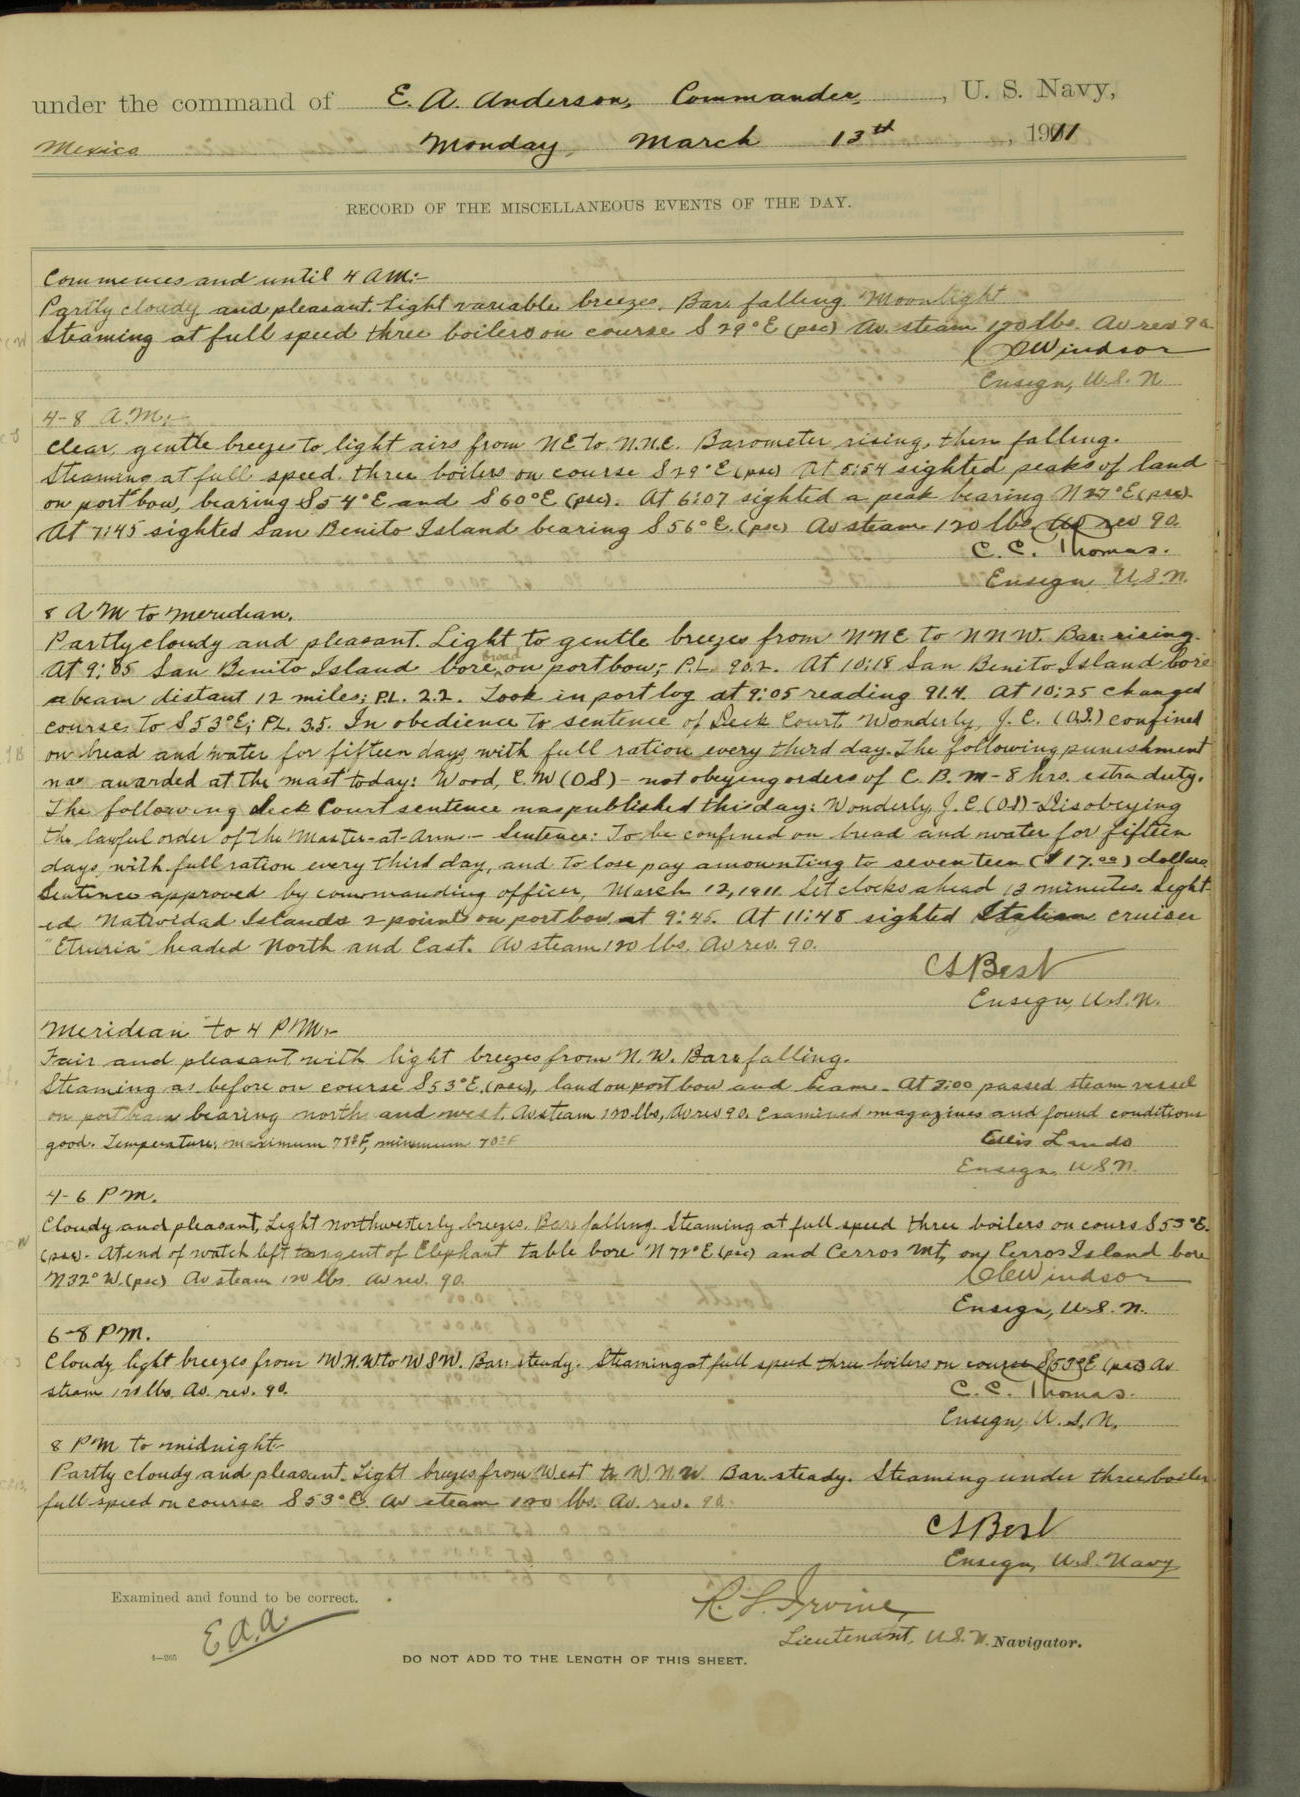 under the command of E. A. Anderson, Commander, , U. S. Navy,
Mexico Monday, March 13th , 1911
RECORD OF THE MISCELLANEOUS EVENTS OF THE DAY.
Commences and until 4 AM:-
Partly cloudy and pleasant. Light variable breezes. Bar. falling. Moonlight
Steaming at full speed three boilers on course S 29° E (psc) Av. steam 120 lbs. Av rev 90.
Windsor
Ensign, U.S. N
4-8 A.M:-
Clear, gentle breezes to light airs from NE to N.N.E. Barometer rising, then falling.
Steaming at full speed three boilers on course S 29° E (psc) At 5:54 sighted peaks of land
on port bow, bearing S 54° E and S 60° E (psc). At 6:07 sighted a peak bearing N 27° E (psc).
At 7:45 sighted San Benito Island bearing S 56° E. (psc) Av steam 120 lbs. Av rev 90.
C. C. Thomas.
Ensign U.S.N.
8 AM to meridian.
Partly cloudy and pleasant. Light to gentle breezes from NNE to NNW. Bar. rising.
At 9:05 San Benito Island bore broad on port bow; P.L. 90.2. At 10:18 San Benito Island bore
abeam distant 12 miles; P.L. 2.2. Took in port log at 9:05 reading 91.4. At 10:25 changed
course to S 53° E; PL. 3.5. In obedience to sentence of Deck Court Wonderly, J. E. (O.S.) confined
on bread and water for fifteen days, with full ration every third day. The following punishment
was awarded at the mast today: Wood, E. W (OS) - not obeying orders of C. B. M - 8 hrs. extra duty.
The following deck Court sentence was published this day: Wonderly, J. E (OS) - Disobeying
the lawful order of the Master-at-Arms - Sentence: To be confined on bread and water for fifteen
days, with full ration every third day, and to lose pay amounting to seventeen ($17.00) dollars
Sentence approved by commanding officer, March 12, 1911. Set clocks ahead 13 minutes. Sight-
ed Natividad Islands 2 points on port bow at 9:45. At 11:48 sighted Italian cruiser
"Etruria" headed North and East. Av steam 120 lbs. Av rev. 90.
CS Best
Ensign, U.S.N.
Meridian to 4 PM:-
Fair and pleasant with light breezes from N.W. Bar. falling.
Steaming as before on course S 53° E. (psc), land on port bow and beam. At 2:00 passed steam vessel
on port beam bearing north and west. Av steam 120 lbs, Av rev 90. Examined magazines and found conditions
good. Temperature; maximum 78° F, minimum 70° F
Ellis Lando
Ensign U.S.N.
4-6 PM.
Cloudy and pleasant, Light northwesterly breezes. Bar. falling. Steaming at full speed three boilers on cours S 53° E.
(psc). At end of watch left tangent of Elephant table bore N 72° E (psc) and Cerros Mt, on Cerros Island bore
N 32° W. (psc) Av steam 120 lbs. Av rev. 90.
Windsor
Ensign, U.S.N.
6-8 PM.
Cloudy light breezes from W.N.W to WSW. Bar. steady. Steaming at full speed three boilers on course S 53° E (psc) Av
steam 120 lbs. Av. rev. 90.
C. C. Thomas.
Ensign, U. S. N.
8 PM to midnight-
Partly cloudy and pleasant. Light breezes from West to W.N.W. Bar. steady. Steaming under three boiler
full speed on course S 53° E. Av steam 120 lbs. Av. rev. 90.
CS Best
Ensign, U.S. Navy
Examined and found to be correct.
E A. A.
R. S. Irvine,
Lieutenant, U.S. N. Navigator.
DO NOT ADD TO THE LENGTH OF THIS SHEET.